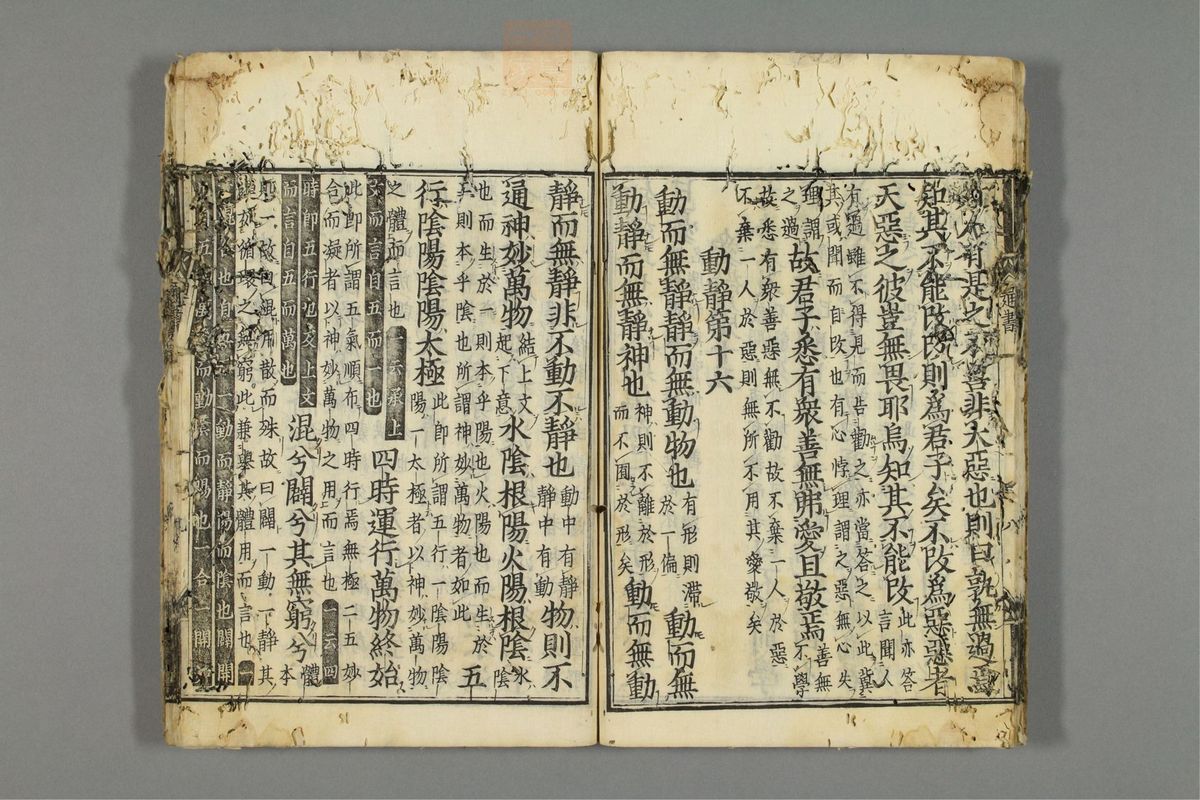 有是之不善非大惡也則曰孰無過焉
知其不能改改則爲君子矣不改爲惡惡者
天惡之彼豈無畏耶烏知其不能改此亦答言聞人
有過雖不得見而告勸之亦當答之以此冀
其或聞而自改也有心悖理謂之惡無心失
理謂之過故君子悉有衆善無弗愛且敬焉善無不學
故悉有衆善惡無不勸故不棄一人於惡
不棄一人於惡則無所不用其愛敬矣
動靜第十六
動而無靜靜而無動物也有形則滯於一偏動而無
動靜而無靜神也神則不離於形而不囿於形矣動而無動
靜而無靜非不動不靜也動中有靜靜中有動物則不
通神妙萬物結上文起下意水陰根陽火陽根陰水陰
也而生於一則本乎陽也火陽也而生於
二則本乎陰也所謂神妙萬物者如此五
行陰陽陰陽太極此即所謂五行一陰陽陰陽一太極者以神妙萬物
之體而言也一云承上文而言自五而一也四時運行萬物終始
此即所謂五氣順布四時行焉無極二五妙
合而凝者以神妙萬物之用而言也一云四
時即五行也友上文而言自五而萬也混兮闢兮其無窮兮體本
則一故曰混用散而殊故曰闢一動一靜其
運如循環之無窮此兼舉其體用而言也